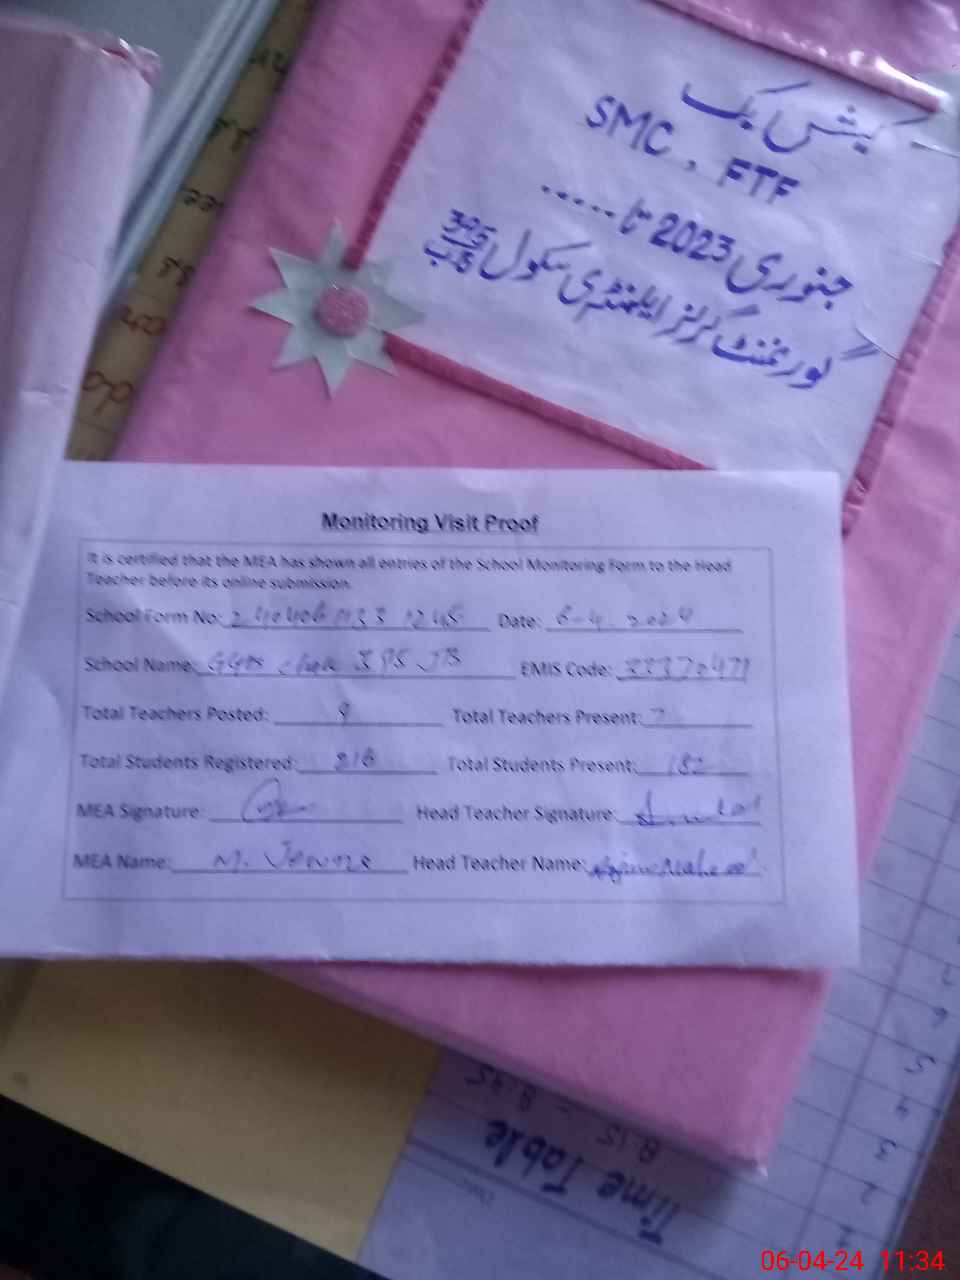 کیش بک
SMC, FTF
جنوری 2023 تا .....
گورنمنٹ گرلز ایلیمنٹری سکول 395 ج ب
Monitoring Visit Proof
It is certified that the MEA has shown all entries of the School Monitoring Form to the Head
Teacher before its online submission.
School Form No: Date: 6-4-2024
School Name: 395 JB EMIS Code: 33370471
Total Teachers Posted: 9 Total Teachers Present: 7
Total Students Registered: 216 Total Students Present: 182
MEA Signature: Head Teacher Signature:
MEA Name: M. Head Teacher Name:
Time Table
8:15 - 8:45
1
2
3
4
5
6
7
06-04-24 11:34